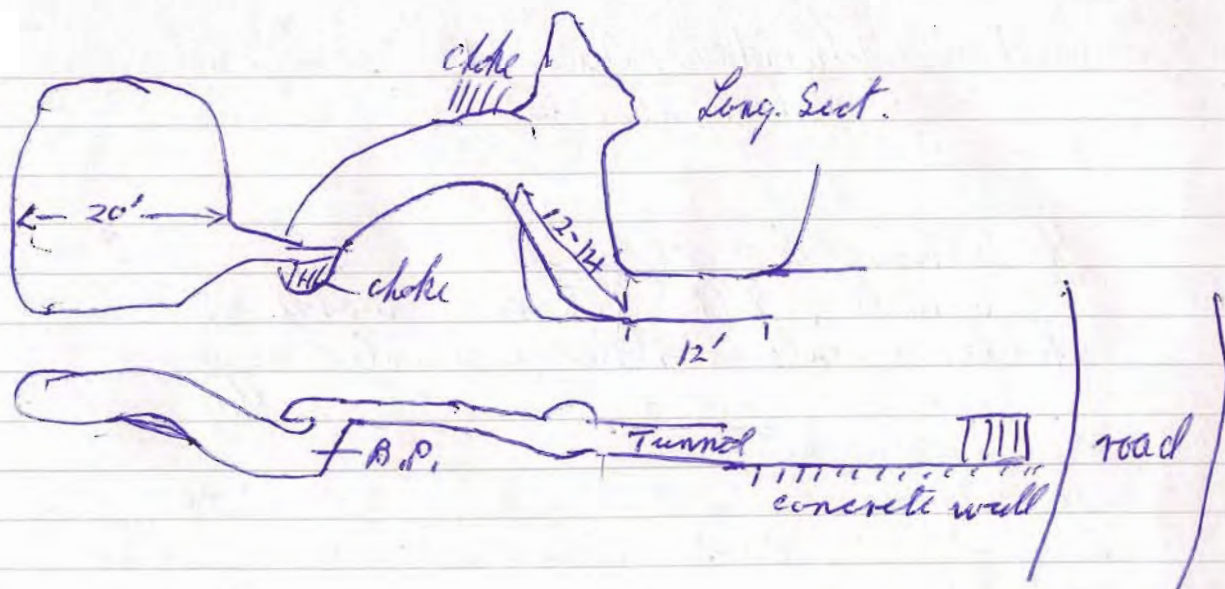 choke
Long. Sect.
20'
12-14
choke
12'
B.P.
Tunnel
road
concrete wall